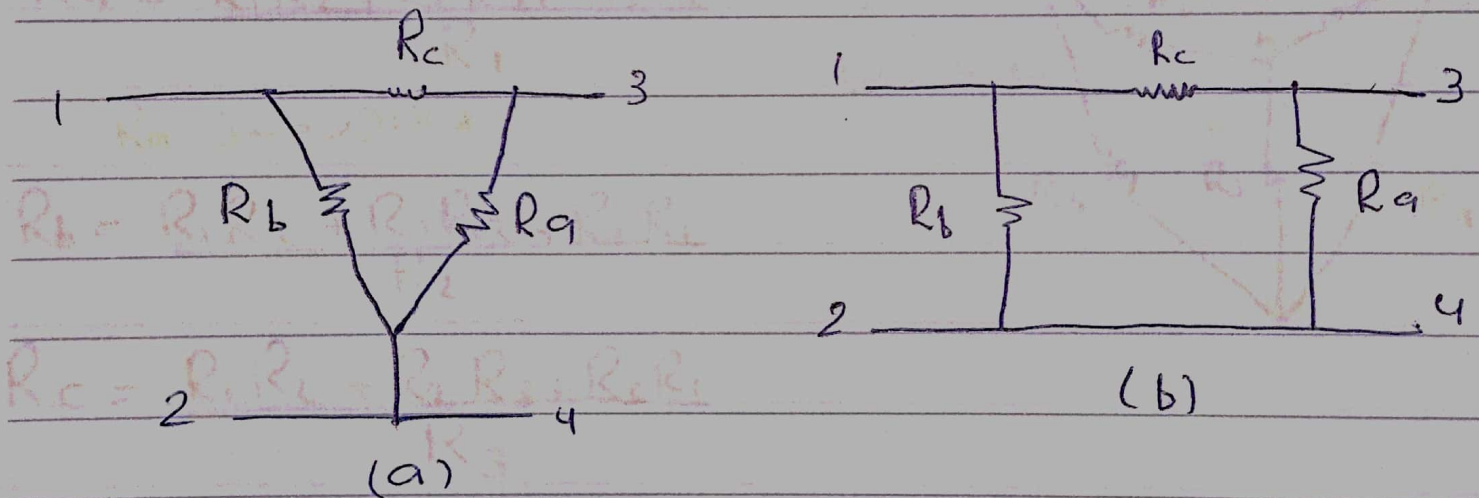 Rc
1 3
Rb Ra
2 4
(a)
Rc
1 3
Rb Ra
2 4
(b)